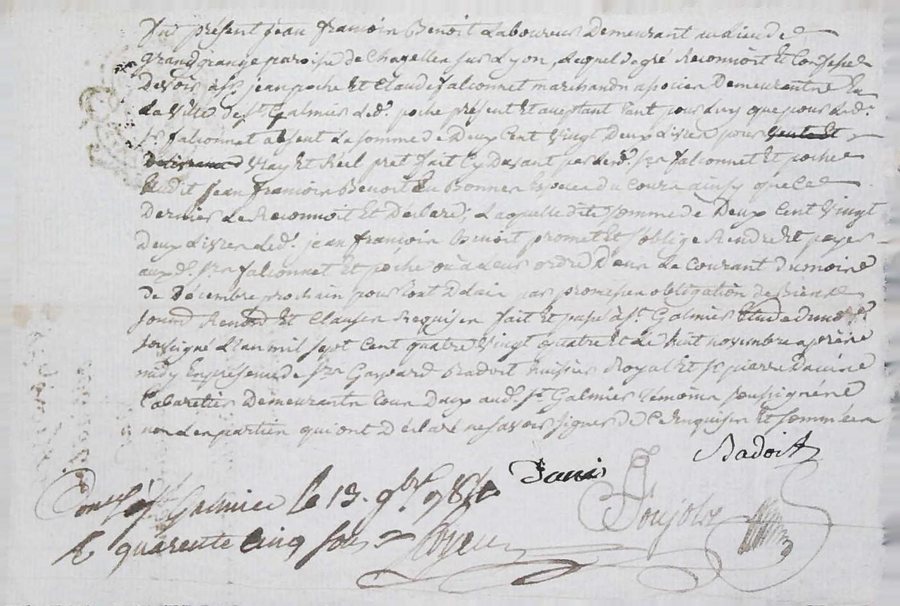 fut présent jean françois Benoit Laboureur Demeurant au Lieu de
grand grange paroisse de Chazelles sur Lyon, Lequel de gré Reconnoit et Confesse
Devoir à srs jean poche Et Claude falconnet marchands associés Demeurants En
La Ville de st Galmier Led. poche présent Et acceptant tant pour Luy que pour Led.
sr falconnet absent La somme de Deux Cent Vingt Deux Livres pour
Vray Et Réel prêt fait Cy Devant par led. srs falconnet Et poche
Audit jean françois Benoit En Bonnes Espèces du Cours ainsy que Ce
Dernier Le Reconnoit Et Déclare; Laquelle dite somme de Deux Cent Vingt
Deux Livres Led. jean françois Benoit promet Et s'oblige Rendre Et payer
auxd. srs falconnet Et poche ou à Leur ordre Dans Le Courant du mois
de Décembre prochain pour tout Délai par promesse obligation de Biens
soumis Renond Et Clauses Requises fait Et passé à st Galmier Etude du no.re
soussigné L'an mil sept Cent quatre Vingt quatre Et Le huit novembre après
midy En présence de sr Gaspard Badoit huissier Royal Et sr pierre
Cabaretier Demeurants tous Deux aud. st Galmier Témoins soussignés
non Les parties qui ont Déclaré ne savoir signer De Ce Enquises Et sommées
Badoit
Ponjolot
Con.lé à st Galmier le 13. 9bre 1784
R quarente cinq sous